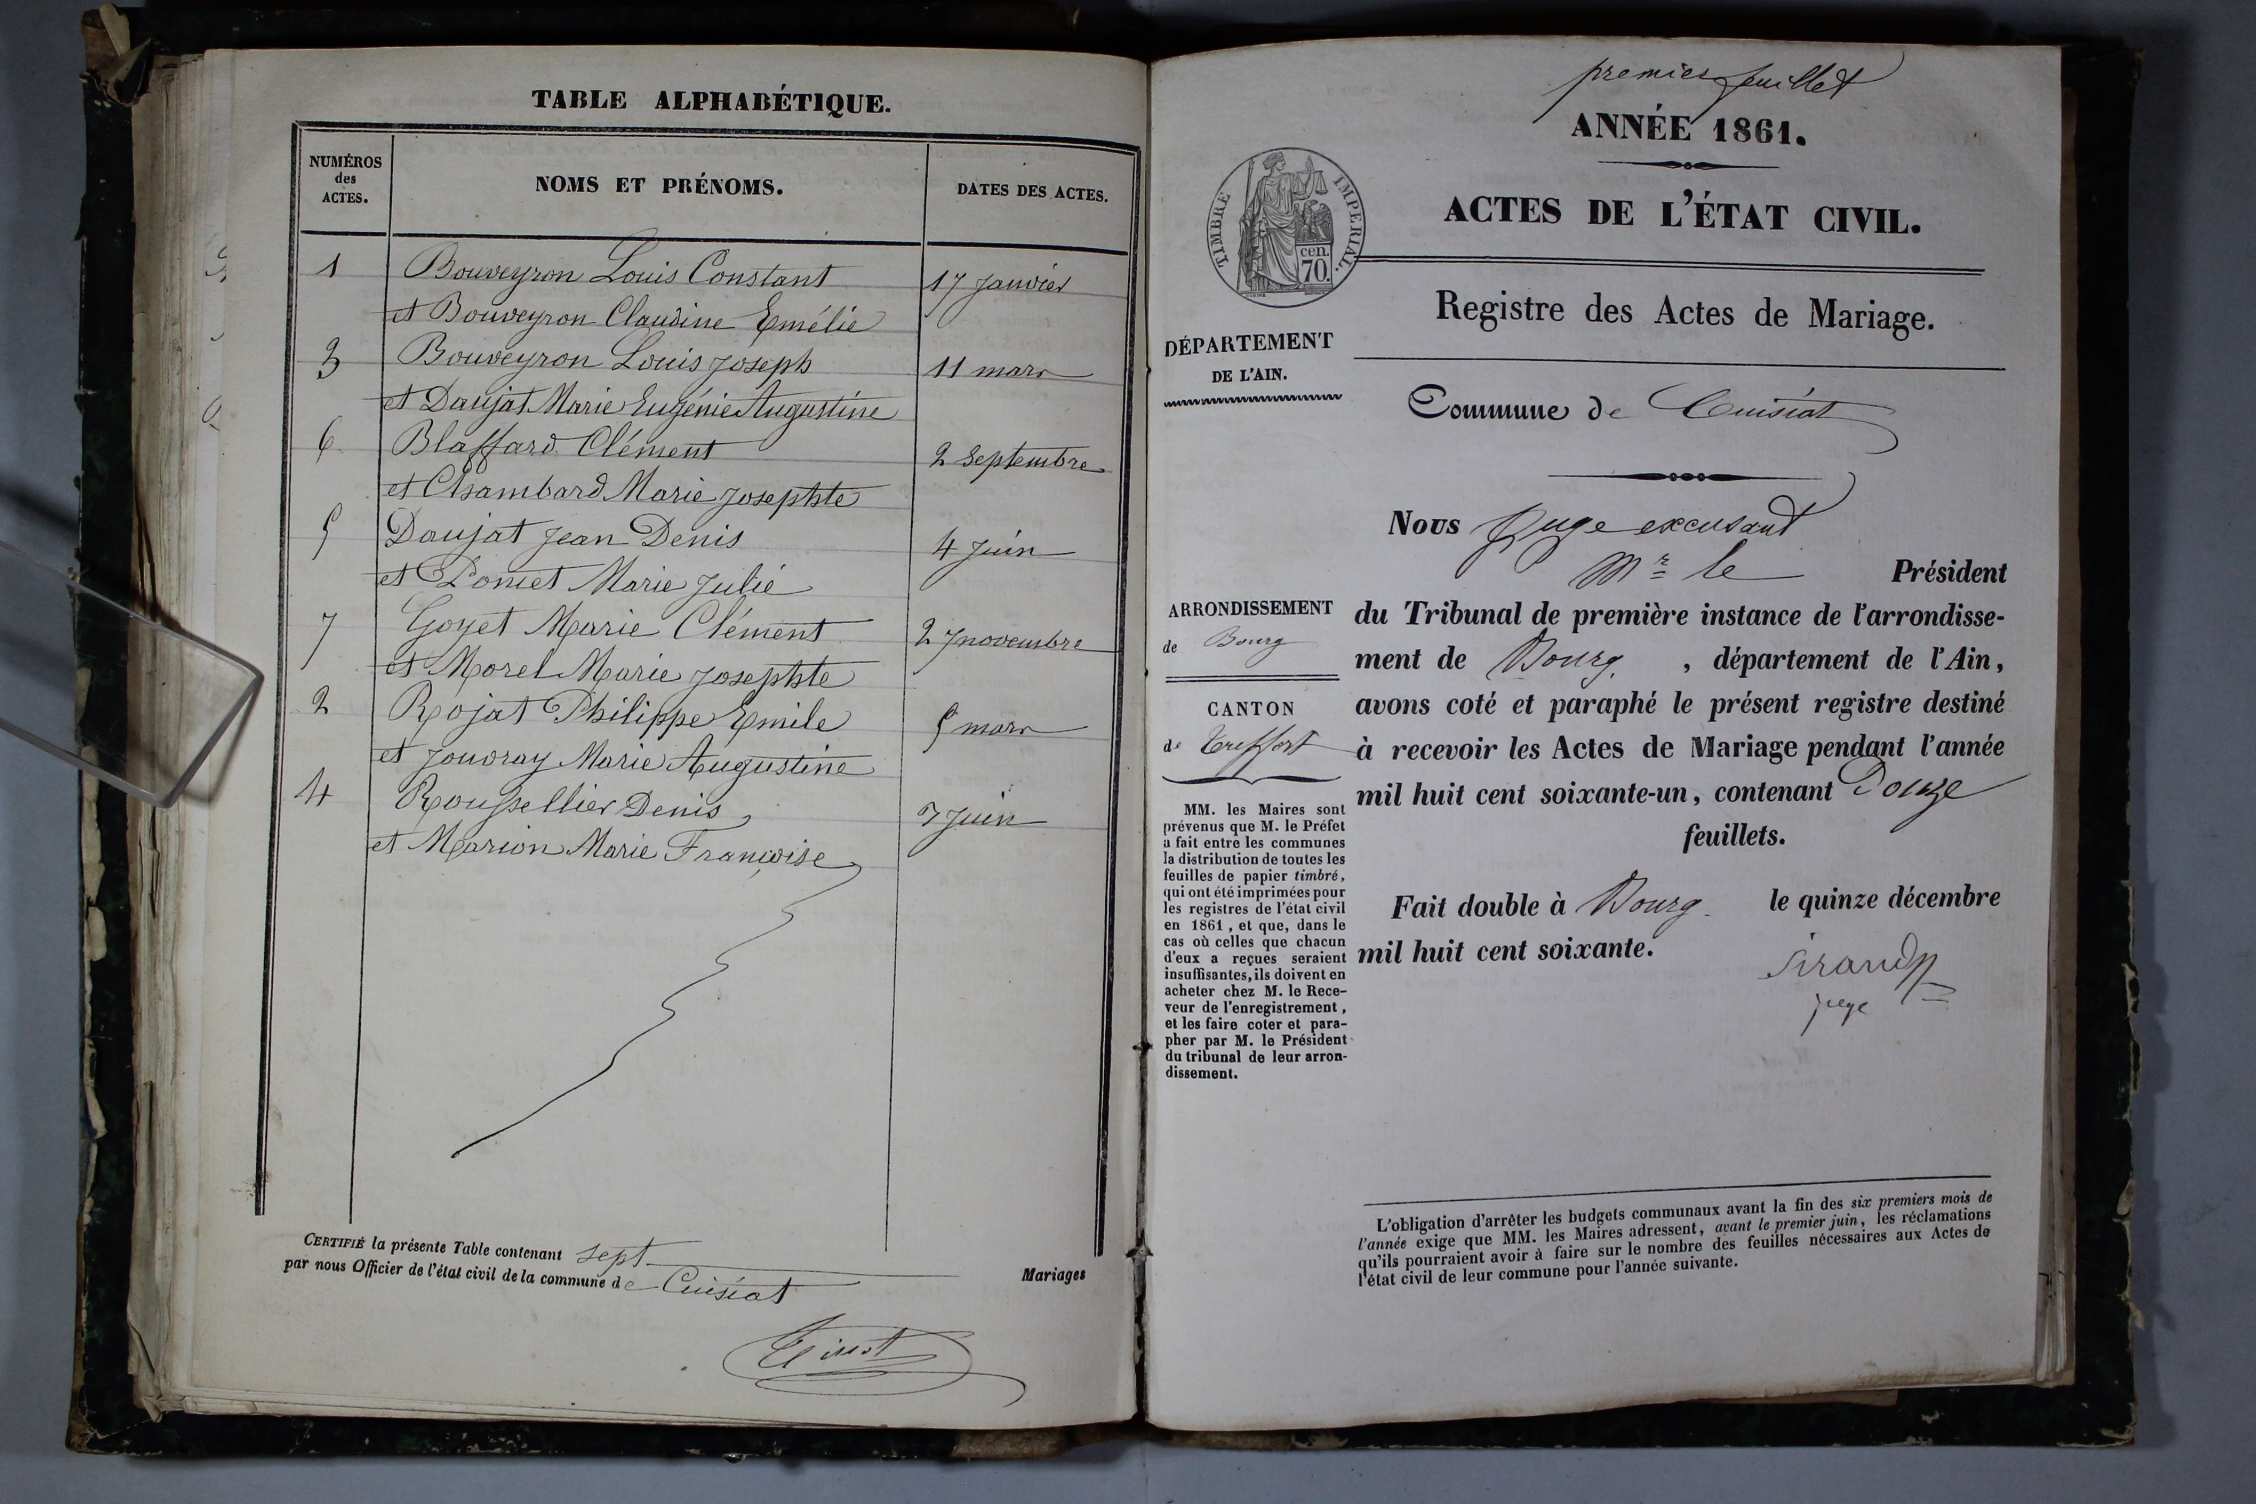 TABLE ALPHABÉTIQUE.
NUMÉROS des ACTES.
NOMS ET PRÉNOMS.
DATES DES ACTES.
1 Bouveyron Louis Constant 17 janvier
et Bouveyron Claudine Emélie
3 Bouveyron Louis joseph 11 mars
et Daujat Marie Eugénie Augustine
6 Blaffard Clément 2 septembre
et Chambard Marie josephte
5 Daujat jean Denis 4 juin
et Poncet Marie julie
7 Goyet Marie Clément 27 novembre
et Morel Marie josephte
2 Rojat Philippe Emile 5 mars
et jouvray Marie Augustine
4 Roussellier Denis 3 juin
et Marion Marie Françoise
CERTIFIÉ la présente Table contenant sept Mariages
par nous Officier de l'état civil de la commune de Cuisiat
premier feuillet
ANNÉE 1861.
ACTES DE L'ÉTAT CIVIL.
TIMBRE IMPERIAL.
cen.
70.
Registre des Actes de Mariage.
DÉPARTEMENT
DE L'AIN.
Commune de Cuisiat
Nous juge excusant
Mr le Président
du Tribunal de première instance de l'arrondisse-
ment de Bourg, département de l'Ain,
avons coté et paraphé le présent registre destiné
à recevoir les Actes de Mariage pendant l'année
mil huit cent soixante-un, contenant Douze
feuillets.
Fait double à Bourg le quinze décembre
mil huit cent soixante.
Sirand
juge
ARRONDISSEMENT
de Bourg
CANTON
de Treffort
MM. les Maires sont
prévenus que M. le Préfet
a fait entre les communes
la distribution de toutes les
feuilles de papier timbré,
qui ont été imprimées pour
les registres de l'état civil
en 1861, et que, dans le
cas où celles que chacun
d'eux a reçues seraient
insuffisantes, ils doivent en
acheter chez M. le Rece-
veur de l'enregistrement,
et les faire coter et para-
pher par M. le Président
du tribunal de leur arron-
dissement.
L'obligation d'arrêter les budgets communaux avant la fin des six premiers mois de
l'année exige que MM. les Maires adressent, avant le premier juin, les réclamations
qu'ils pourraient avoir à faire sur le nombre des feuilles nécessaires aux Actes de
l'état civil de leur commune pour l'année suivante.